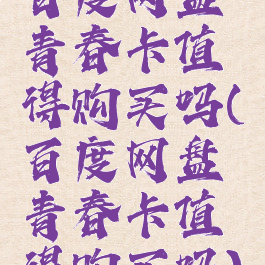 百度网盘
青春卡值
得购买吗(
百度网盘
青春卡值
得购买吗)